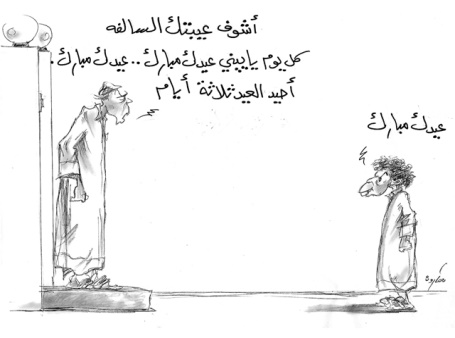 أشوف عيبتك السالفه
كل يوم يايبني عيدك مبارك .. عيدك مبارك .
أحيد العيد ثلاثة أيام
عيدك مبارك